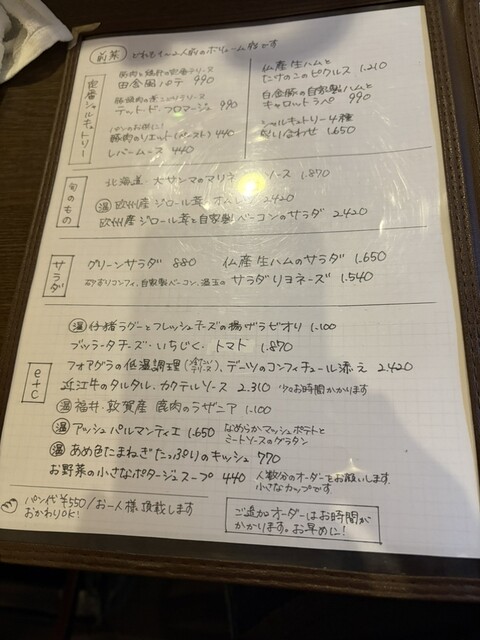 前菜 どれも1〜2人前のボリューム感です
定番シャルキュトリー
田舎風パテ 990
テット・ド・フロマージュ 990
パンのお供に!
豚肉のリエット(ペースト) 440
レバームース 440
仏産生ハムと
たけのこのピクルス 1.210
白金豚の自家製ハムと
キャロットラペ 990
シャルキュトリー4種
盛り合わせ 1.650
旬のもの
北海道・大サンマのマリネ ソース 1.870
温 欧州産ジロール茸 オムレツ 2.420
欧州産ジロール茸と自家製ベーコンのサラダ 2.420
サラダ
グリーンサラダ 880 仏産生ハムのサラダ 1.650
砂ずりコンフィ、自家製ベーコン、温玉の サラダリヨネーズ 1.540
etc
温 仔猪ラグーとフレッシュチーズの揚げラビオリ 1.100
ブッラータチーズ・いちじく・トマト 1.870
フォアグラの低温調理 、デーツのコンフィチュール添え 2.420
近江牛のタルタル、カクテルソース 2.310 少々お時間かかります
温 福井・敦賀産 鹿肉のラザニア 1.100
温 アッシュパルマンティエ 1.650 なめらかマッシュポテトと
ミートソースのグラタン
温 あめ色たまねぎたっぷりのキッシュ 770
お野菜の小さなポタージュスープ 440 人数分のオーダーをお願いします
小さなカップです
パン代¥550/お一人様頂戴します
おかわりOK!
ご追加オーダーはお時間が
かかります。お早めに!